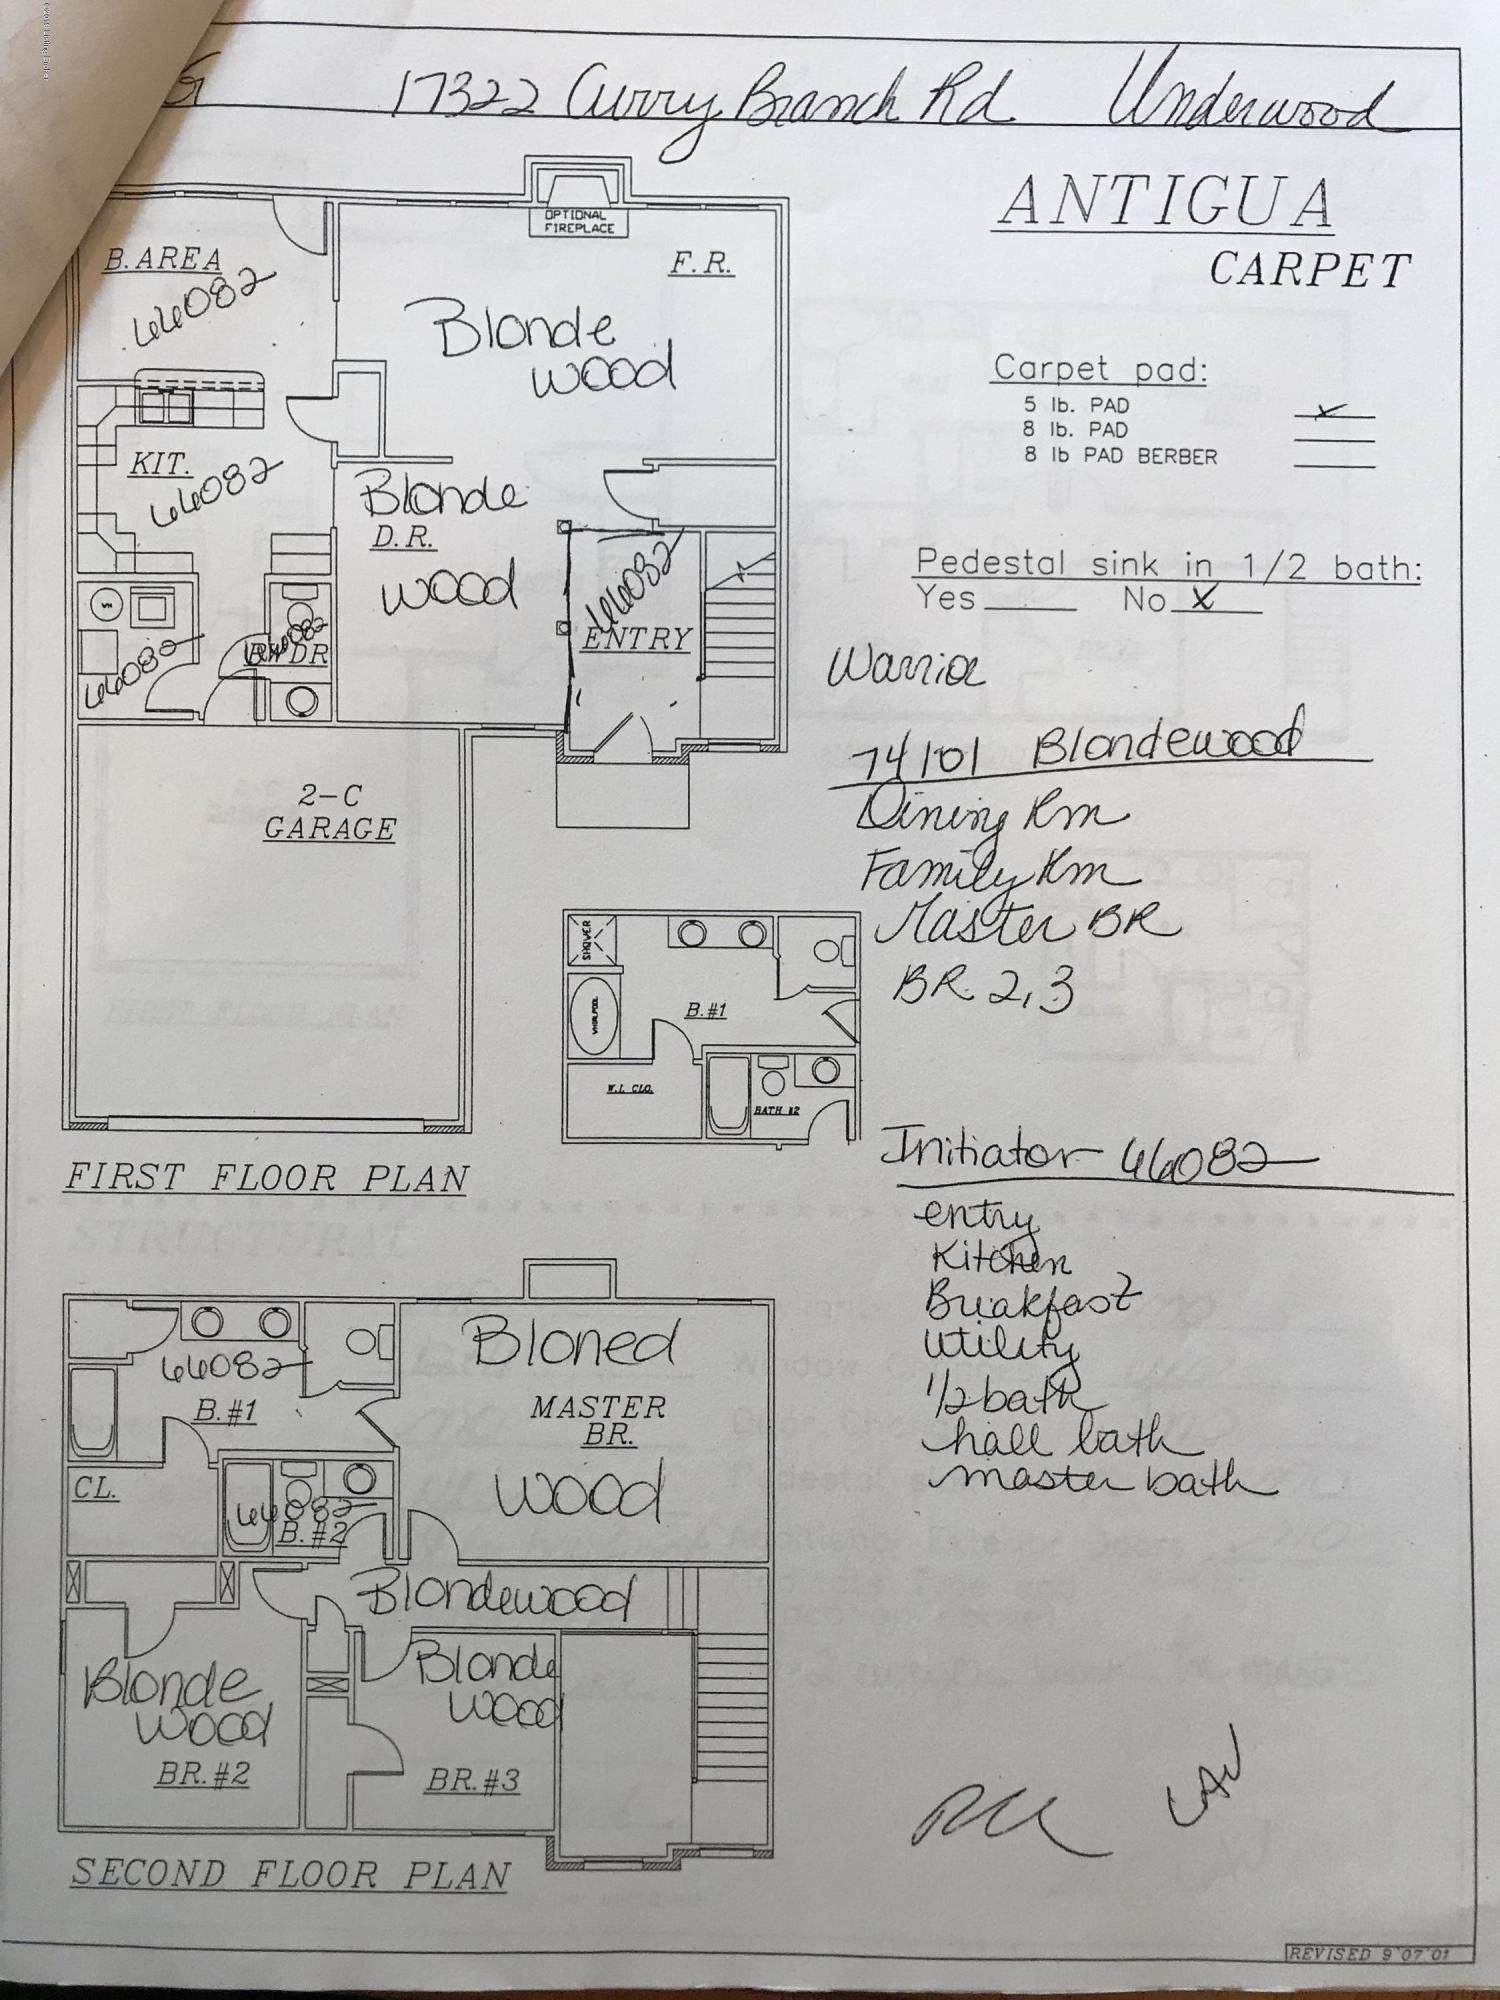 17322 Curry Branch Rd Underwood
ANTIGUA
CARPET
OPTIONAL
FIREPLACE
B. AREA
66082
F.R.
Blonde
wood
Carpet pad:
5 lb. PAD
8 lb. PAD
8 lb PAD BERBER
KIT.
66082
Blonde
D.R.
wood
66082
ENTRY
WH
66082
66082
PWDR
Pedestal sink in 1/2 bath:
Yes No X
Warrior
74101 Blondewood
Dining Rm
Family Rm
Master BR
BR. 2,3
2-C
GARAGE
SHOWER
WHIRLPOOL
B.#1
W.I. CLO.
BATH #2
FIRST FLOOR PLAN
Initiator 66082
entry
Kitchen
Breakfast
Utility
1/2 bath
hall bath
master bath
66082
B.#1
Bloned
MASTER
BR.
wood
CL.
66082
B.#2
Blondewood
Blonde
wood
BR.#2
Blonde
wood
BR.#3
LAU
SECOND FLOOR PLAN
REVISED 9 07 01